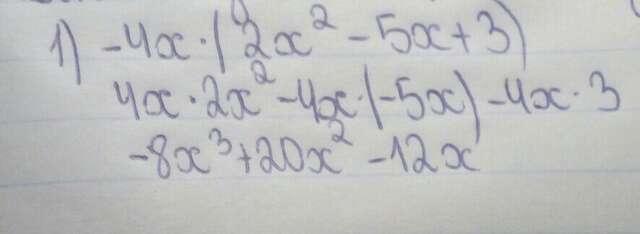 1) -4x·(2x² - 5x + 3)
4x·2x² - 4x·(-5x) - 4x·3
-8x³ + 20x² - 12x